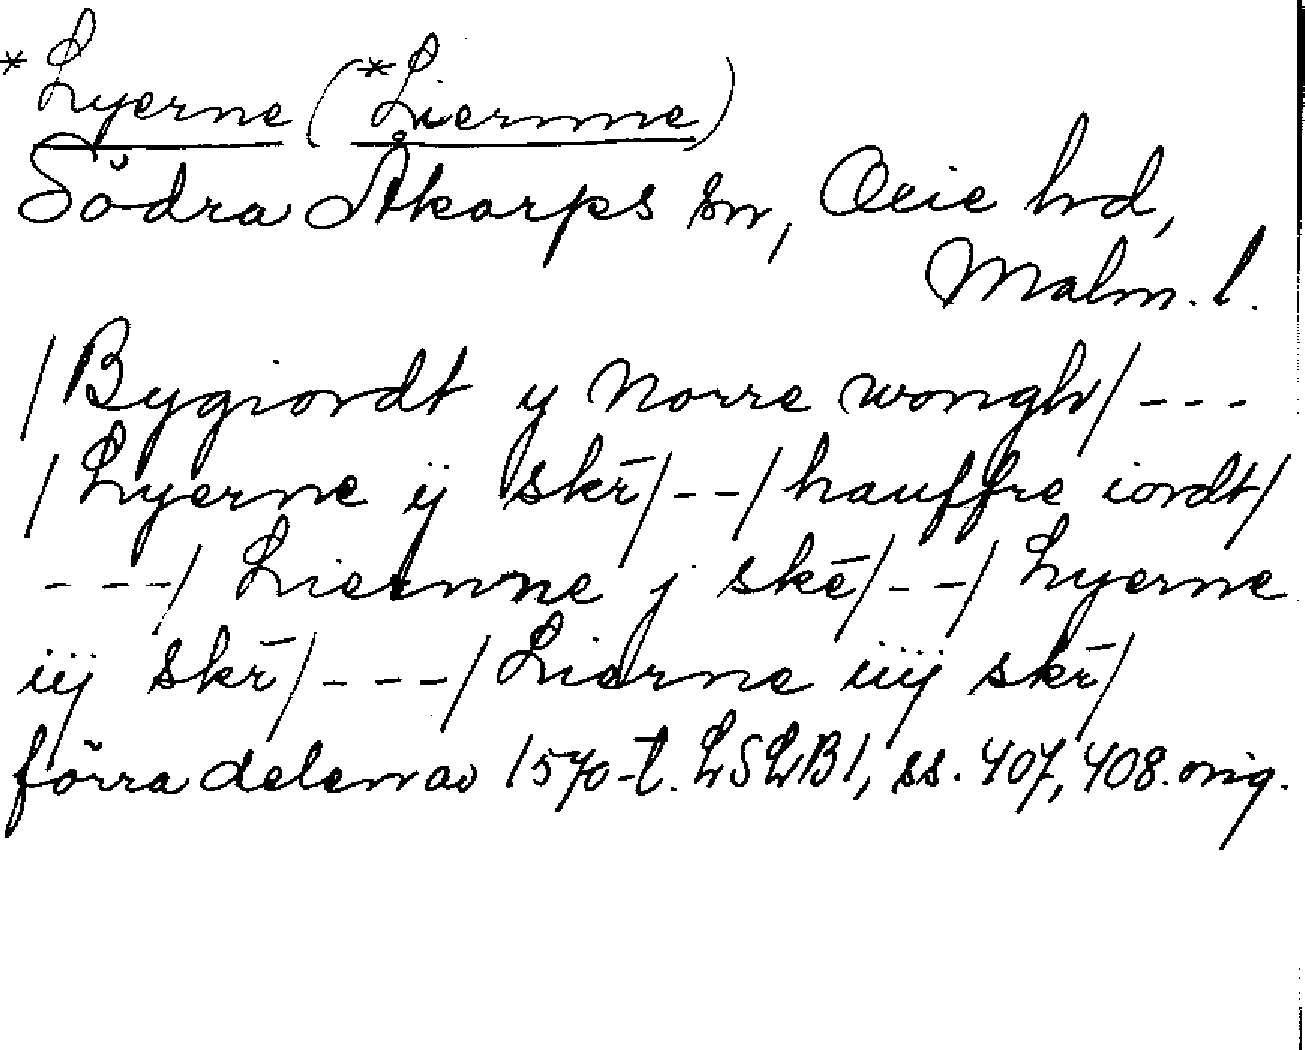 *Lyerne (*Liernne)
Södra Åkarps sn, Oxie hd,
Malm. l.
/Bygiordt y Norre wongh/ ---
/Lyerne ij skr̄/--/hauffre iordt/
---/ Liernne j skē/--/ Lyerne
iij skr̄/---/Lierne iiij skr̄/
förra delen av 1570-t. LSLB1, ss. 407, 408. orig.